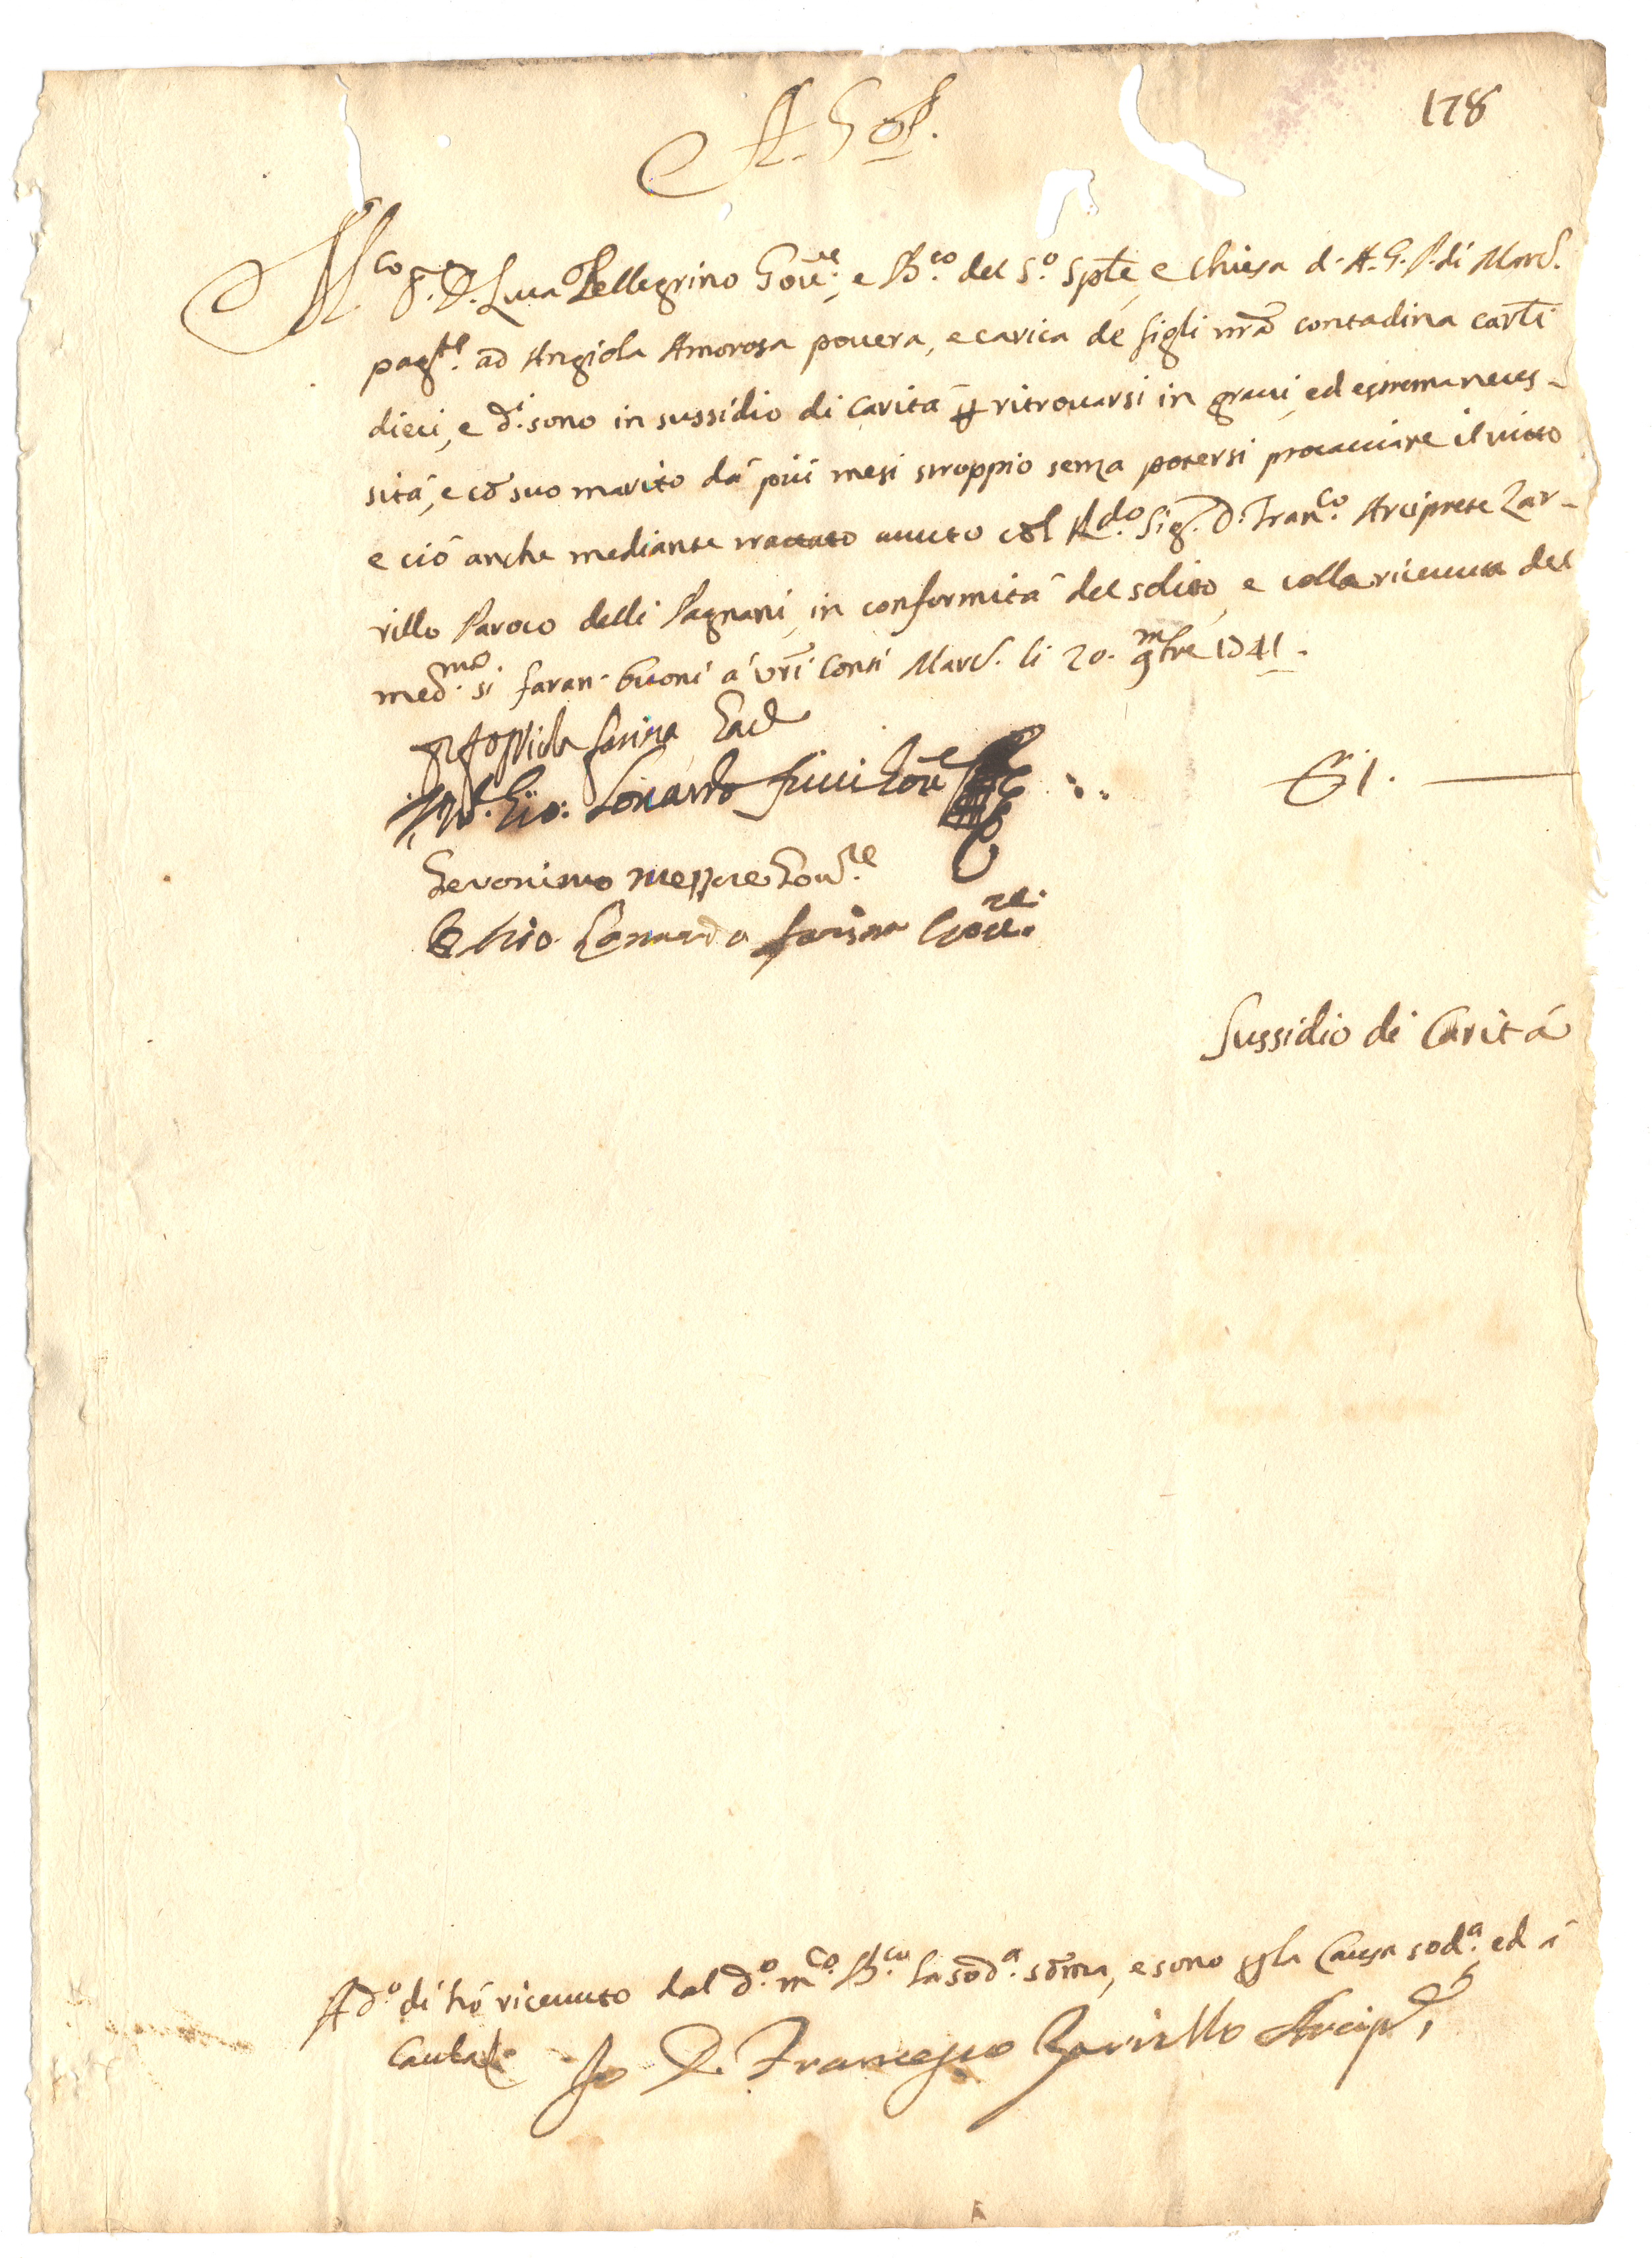 178
A. G. P.
M.co Sig.r D. Luca Pellegrino Gov.re, e B.co del S.o Sp.le, e Chiesa d. A. G. P. di Marc.
pag.te ad Angiola Amorosa povera, e carica de figli nr̃a contadina carl.i
dieci, e d.i sono in sussidio di carità p ritrovarsi in gravi, ed estrema neces-
sità, e cõ suo marito dà più mesi stroppio senza potersi procacciare il vitto
e ciò anche mediante trattato avuto col R.do Sig.r D. Fran.co Arciprete Zar-
rillo Paroco delli Pagnani, in conformità del solito, e colla ricevuta del
med.mo si faran. buoni a' vr̃i Conti Marc. li 20. 9mbre 1741.
Gio: Lonardo Gov.re
D 1.
Geronimo Gov.re
Gio. Lonardo farina Gov.re
Sussidio di Carità
A d.o dì hò ricevuto dal d.o m.co B.co la sod.a som̃a, e sono p la Causa sod.a, ed à
Cautela Io D. Francesco Zarrillo Arcip.